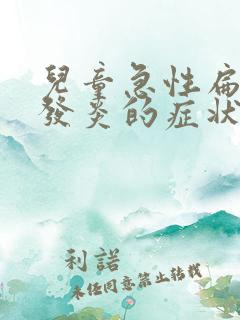 兒童急性扁
發炎的症狀
利諾
未經同意禁止轉載